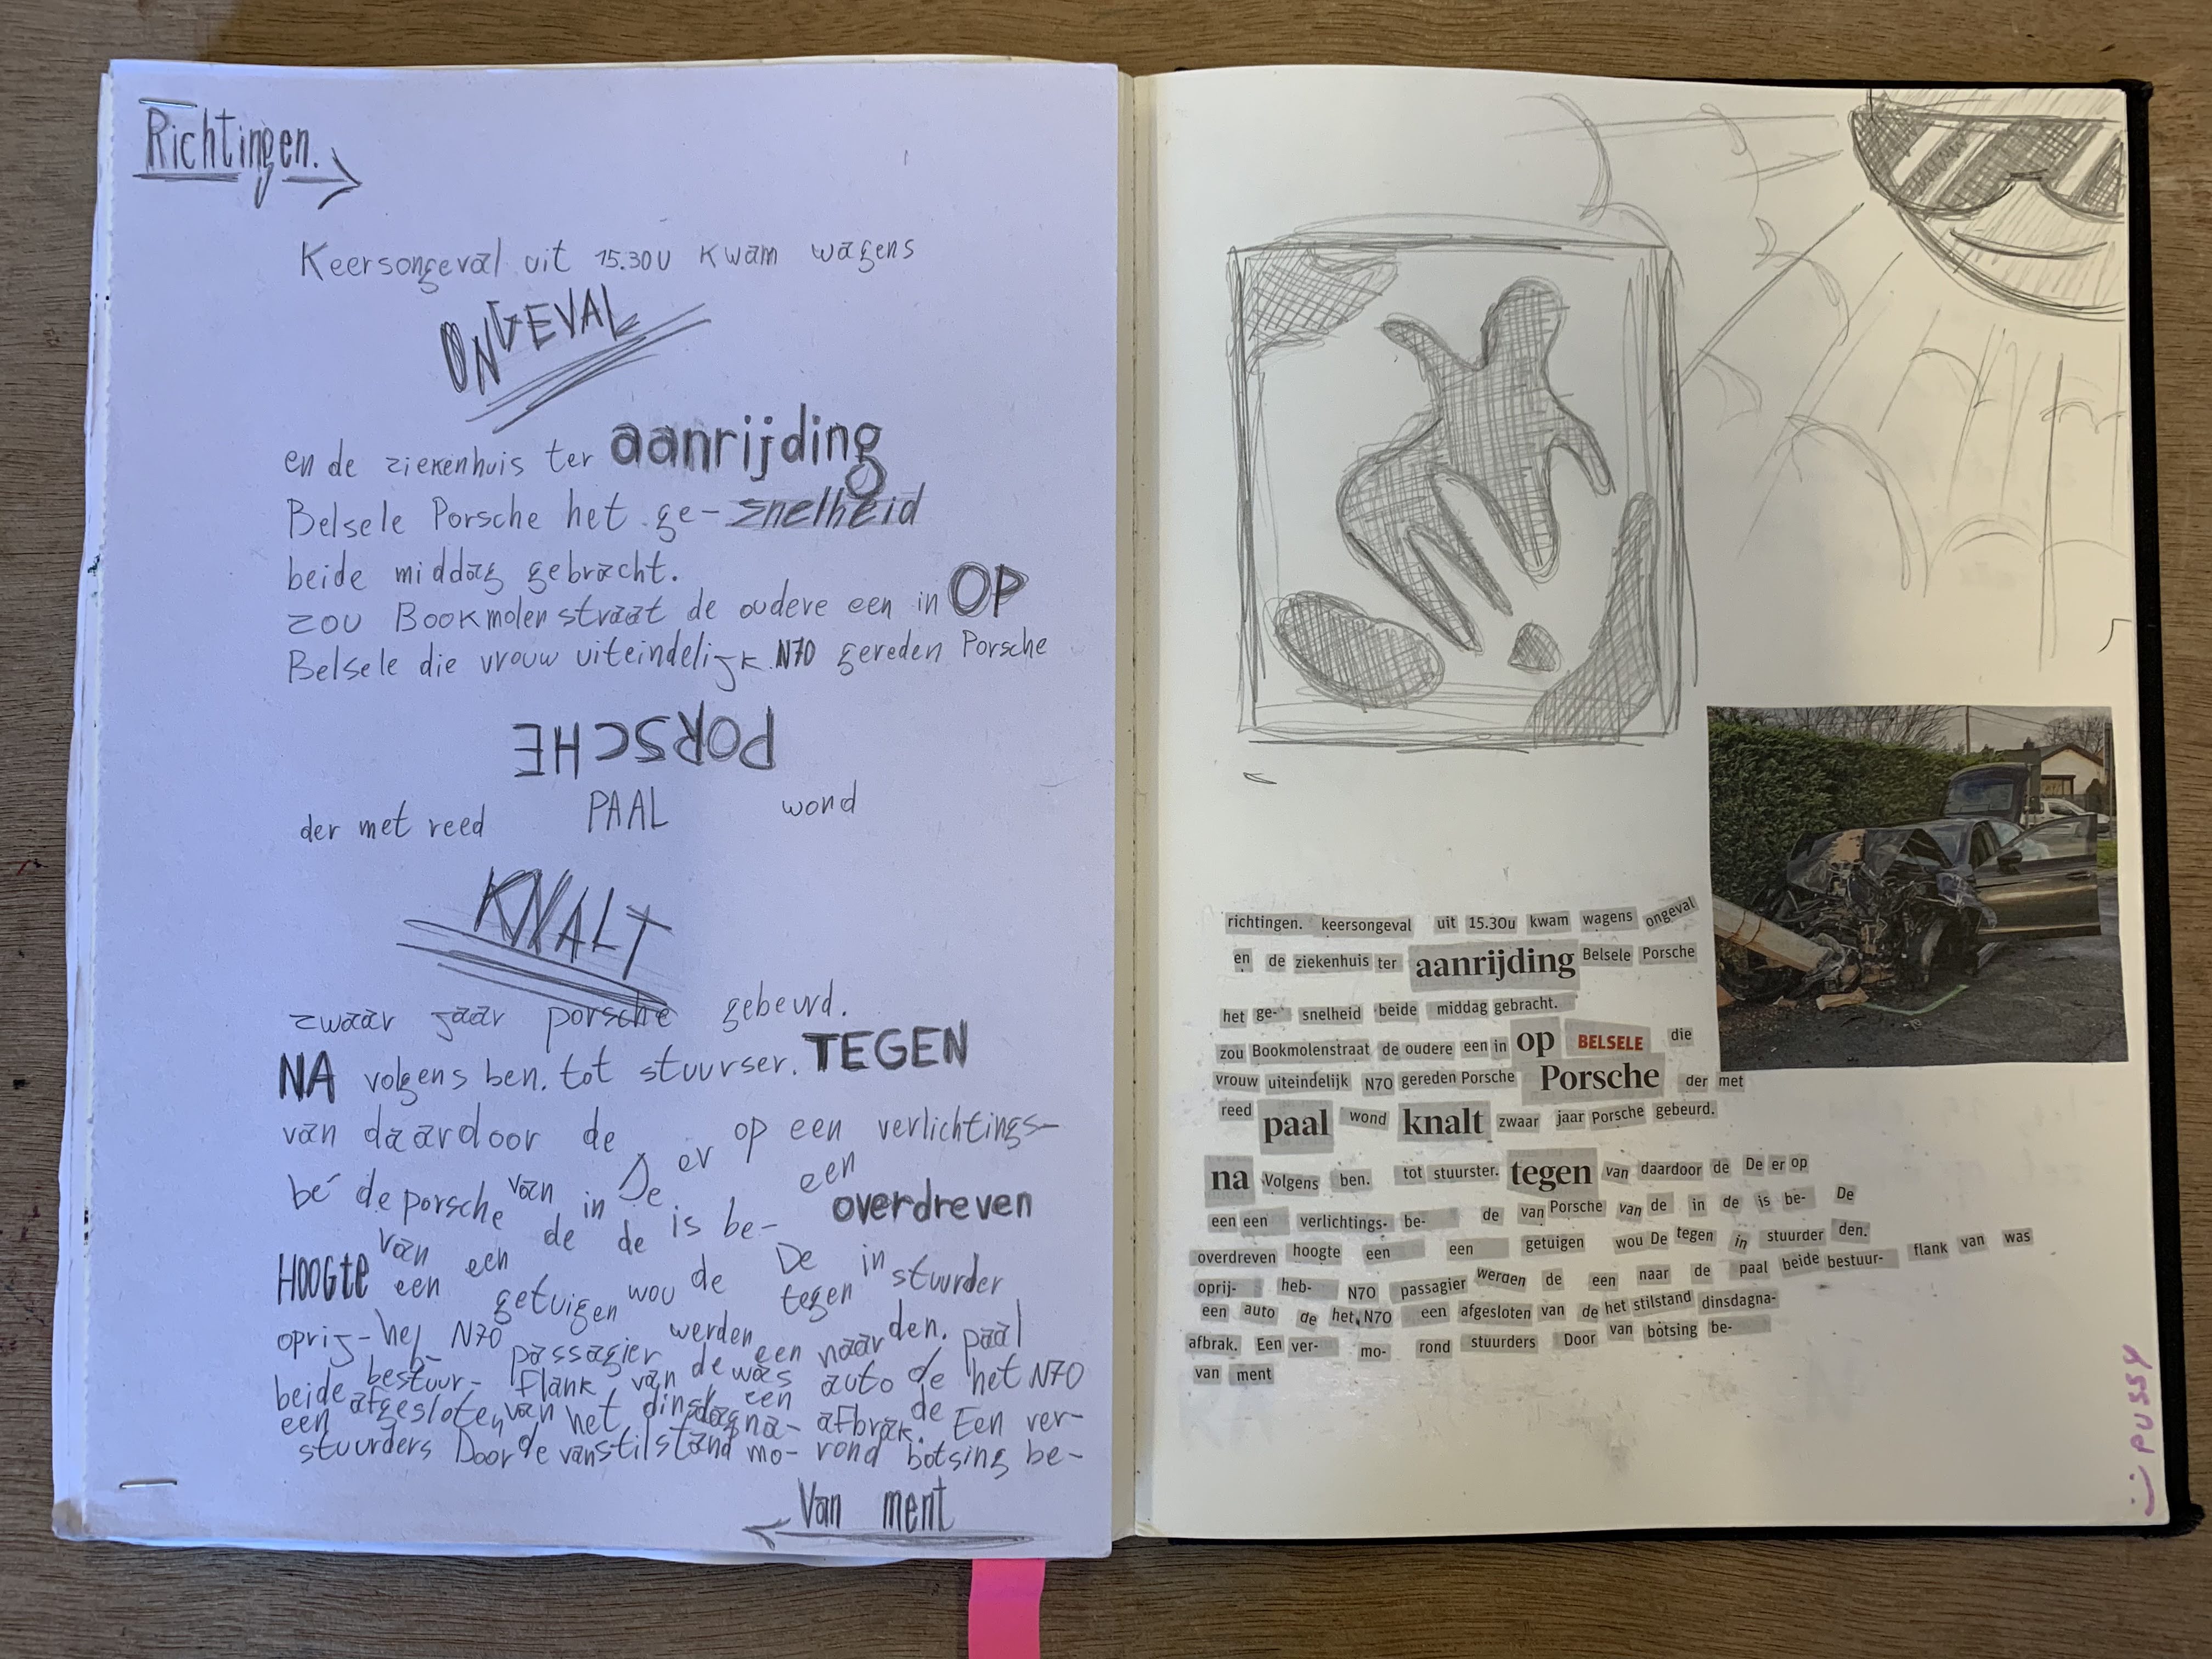 Richtingen.
Keersongeval uit 15.30U kwam wagens
ONGEVAL
en de ziekenhuis ter aanrijding
Belsele Porsche het ge- snelheid
beide middag gebracht.
zou Bookmolenstraat de oudere een in OP
Belsele die vrouw uiteindelijk N70 gereden Porsche
PORSCHE
der met reed PAAL wond
KNALT
zwaar jaar porsche gebeurd.
NA volgens ben. tot stuurser. TEGEN
van daardoor de De er op een verlichtings-
be- de porsche van in de is be- een
de de overdreven
HOOGte van een een De in
een getuigen wou de tegen stuurder
oprij- heb- N70 werden een naar den. paal
beide bestuur- passagier flank van de was auto de het N70
een afgesloten van het dinsdagna- een afbrak. de Een ver-
stuurders Door de van stilstand mo- rond botsing be-
Van ment
richtingen. keersongeval uit 15.30u kwam wagens ongeval
en de ziekenhuis ter aanrijding Belsele Porsche
het ge- snelheid beide middag gebracht.
zou Bookmolenstraat de oudere een in op BELSELE die
vrouw uiteindelijk N70 gereden Porsche Porsche der met
reed paal wond knalt zwaar jaar Porsche gebeurd.
na Volgens ben. tot stuurster. tegen van daardoor de De er op
een een verlichtings- be- de van Porsche van de in de is be- De
overdreven hoogte een een getuigen wou De tegen in stuurder den.
oprij- heb- N70 passagier werden de een naar de paal beide bestuur- flank van was
een auto de het N70 een afgesloten van de het stilstand dinsdagna-
afbrak. Een ver- mo- rond stuurders Door van botsing be-
van ment
:) PUSSY